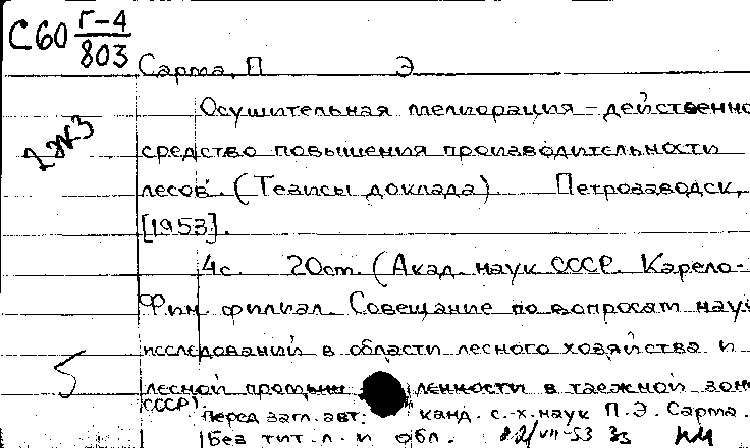 С60 Г-4
803
Сарма, П Э
Осушительная мелиорация - действенно
средство повышения производительности
лесов. (Тезисы доклада). Петрозаводск,
[1953].
4с. 20см. (Акад. наук СССР. Карело-
Фин. филиал. Совещание по вопросам науч
исследований в области лесного хозяйства и
лесной промыш ленности в таежной зон
СССР)
Перед загл. авт.: канд. с.-х. наук П.Э. Сарма.
Без тит. л. и обл.
2 экз
5